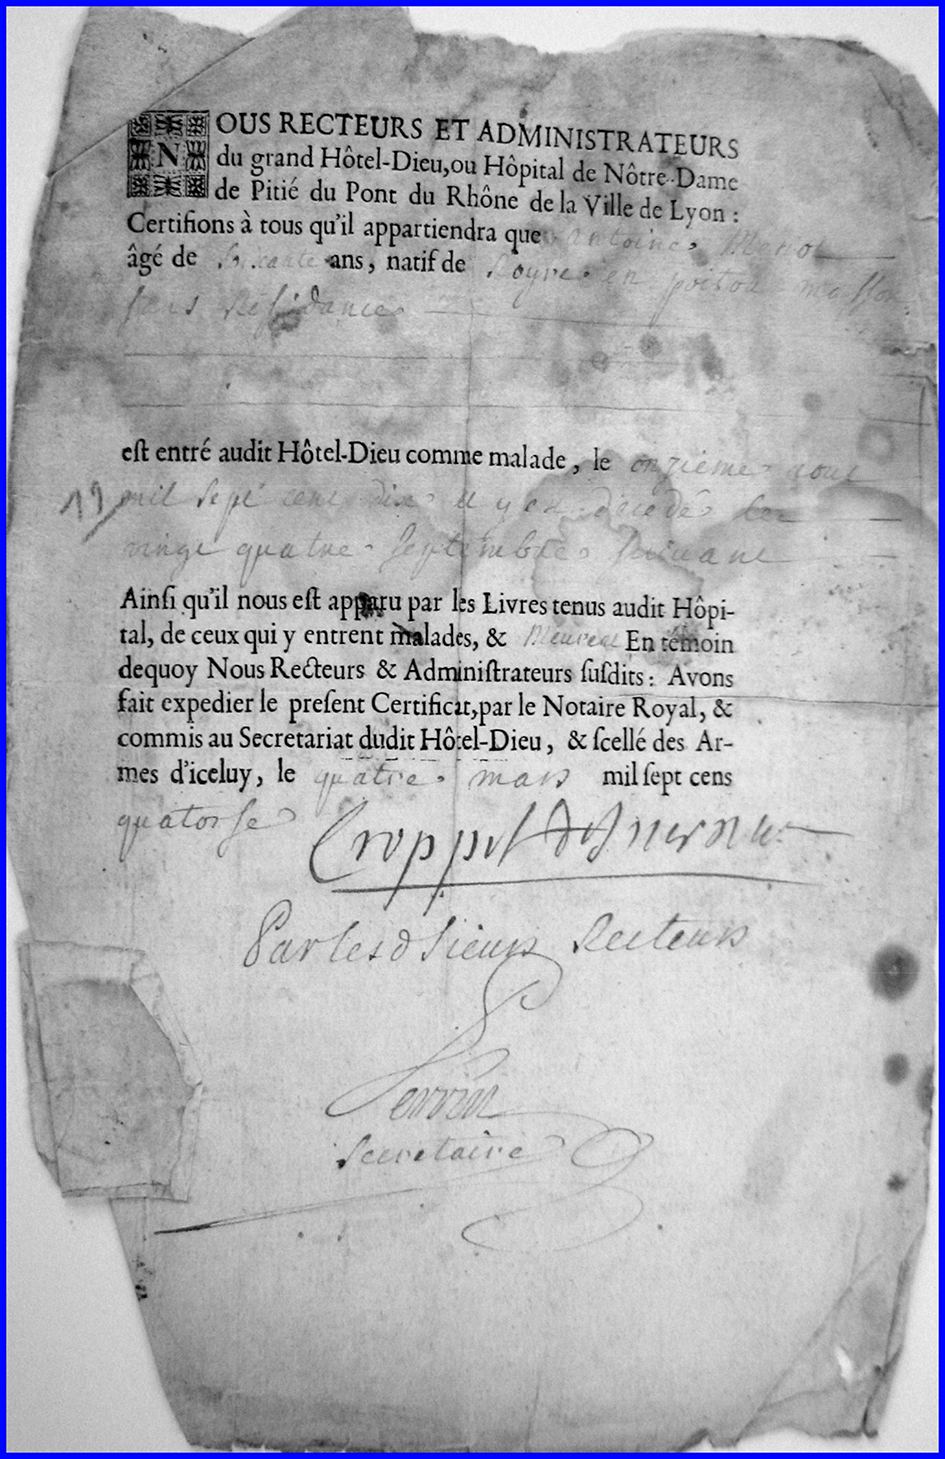 NOUS RECTEURS ET ADMINISTRATEURS
du grand Hôtel-Dieu,ou Hôpital de Nôtre-Dame
de Pitié du Pont du Rhône de la Ville de Lyon :
Certifions à tous qu'il appartiendra que Antoine
âgé de Soixante ans, natif de en poitou masson
sans Residance
eſt entré audit Hôtel-Dieu comme malade, le onzieme aout
19 mil sept cent dix et y en decedé le
vingt quatre Septembre Suivant
Ainſi qu'il nous eſt apparu par les Livres tenus audit Hôpi-
tal, de ceux qui y entrent malades, & Meurent En témoin
dequoy Nous Recteurs & Adminiſtrateurs ſuſdits : Avons
fait expedier le preſent Certificat,par le Notaire Royal, &
commis au Secretariat dudit Hôtel-Dieu, & ſcellé des Ar-
mes d'iceluy, le quatre mars mil ſept cens
quatorse Croppet
Par lesd Sieurs Recteurs
Perrin
Secretaire